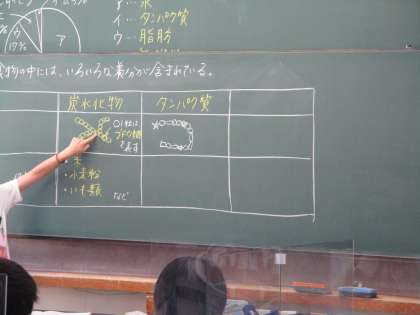 ア
ウ
17%
イ…タンパク質
ウ…脂肪
物の中には、いろいろな養分が含まれている。
炭水化物
タンパク質
ブドウ糖
を表す
・米
・小麦粉
・いも類
など